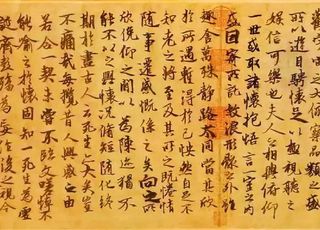 觀宇宙之大俯察品類之盛
所以遊目騁懷足以極視聽之
娛信可樂也夫人之相與俯仰
一世或取諸懷抱悟言一室之內
或因寄所託放浪形骸之外雖
趣舍萬殊靜躁不同當其欣
於所遇蹔得於己怏然自足不
知老之將至及其所之既惓情
隨事遷感慨係之矣向之所
欣俛仰之閒以為陳迹猶不
能不以之興懷況脩短隨化終
期於盡古人云死生亦大矣豈
不痛哉每攬昔人興感之由
若合一契未嘗不臨文嗟悼不
能喻之於懷固知一死生為虛
誕齊彭殤為妄作後之視今